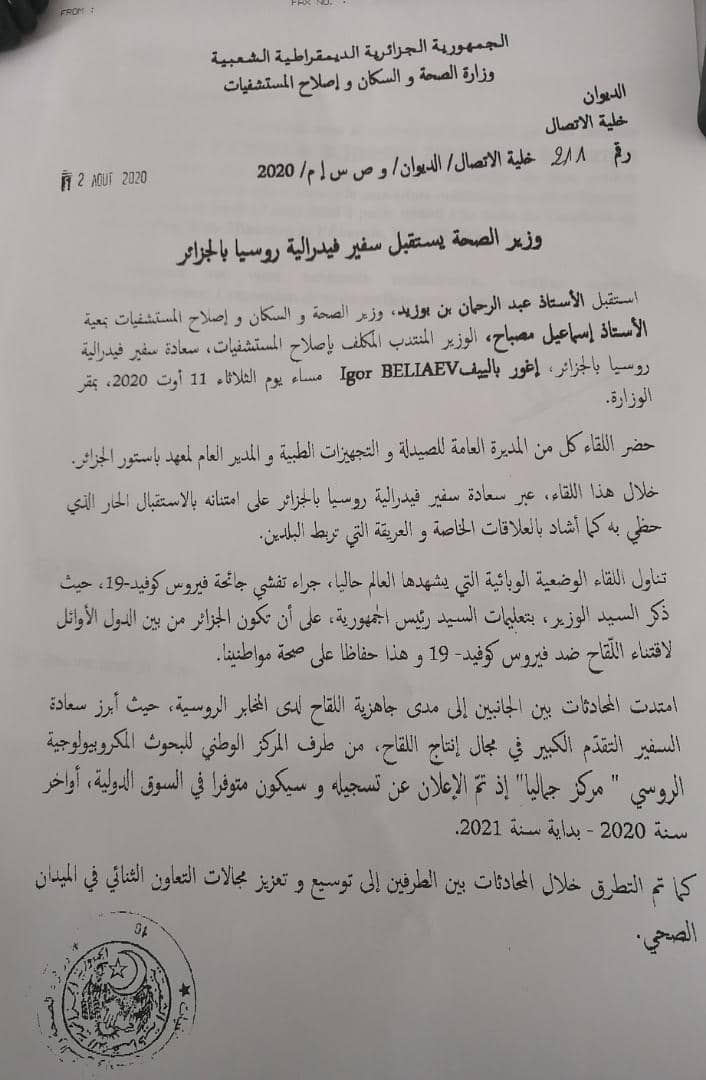 FROM :
FAX NO. :
الجمهورية الجزائرية الديمقراطية الشعبية
وزارة الصحة و السكان و إصلاح المستشفيات
الديوان
خلية الاتصال
رقم 211 خلية الاتصال/ الديوان/ و ص س إ م/ 2020
2 AOUT 2020
وزير الصحة يستقبل سفير فيدرالية روسيا بالجزائر
استقبل الأستاذ عبد الرحمان بن بوزيد، وزير الصحة و السكان و إصلاح المستشفيات بمعية
الأستاذ إسماعيل مصباح، الوزير المنتدب المكلف بإصلاح المستشفيات، سعادة سفير فيدرالية
روسيا بالجزائر، إغور بالييف Igor BELIAEV مساء يوم الثلاثاء 11 أوت 2020، بمقر
الوزارة.
حضر اللقاء كل من المديرة العامة للصيدلة و التجهيزات الطبية و المدير العام لمعهد باستور الجزائر.
خلال هذا اللقاء، عبر سعادة سفير فيدرالية روسيا بالجزائر على امتنانه بالاستقبال الحار الذي
حظي به كما أشاد بالعلاقات الخاصة و العريقة التي تربط البلدين.
تناول اللقاء الوضعية الوبائية التي يشهدها العالم حاليا، جراء تفشي جائحة فيروس كوفيد-19، حيث
ذكر السيد الوزير، بتعليمات السيد رئيس الجمهورية، على أن تكون الجزائر من بين الدول الأوائل
لاقتناء اللّقاح ضد فيروس كوفيد- 19 و هذا حفاظا على صحة مواطنينا.
امتدت المحادثات بين الجانبين إلى مدى جاهزية اللقاح لدى المخابر الروسية، حيث أبرز سعادة
السفير التقدّم الكبير في مجال إنتاج اللقاح، من طرف المركز الوطني للبحوث المكروبيولوجية
الروسي " مركز جماليا" إذ تمّ الإعلان عن تسجيله و سيكون متوفرا في السوق الدولية، أواخر
سنة 2020 - بداية سنة 2021.
كما تم التطرق خلال المحادثات بين الطرفين إلى توسيع و تعزيز مجالات التعاون الثنائي في الميدان
الصحي.